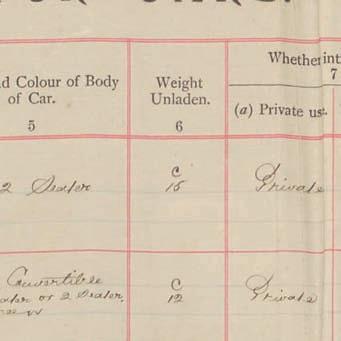 d Colour of Body
of Car.
5
Weight
Unladen.
6
Whether int
7
(a) Private use.
2 Seater
C
15
Private
Convertible
ater or 2 Seater,
C
12
Private